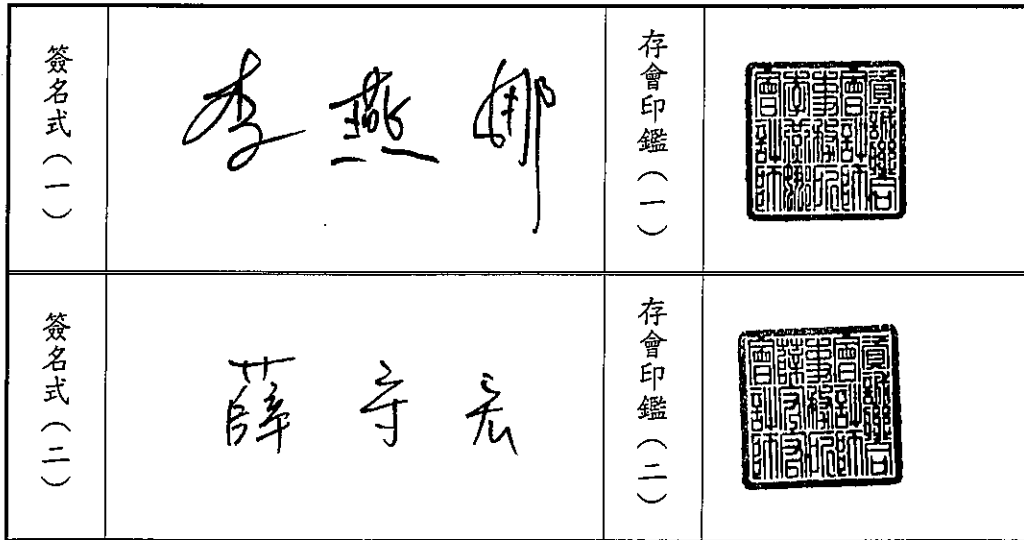 簽名式(一)
李燕娜
存會印鑑(一)
資誠聯合
會計師
事務所
李燕娜
會計師
簽名式(二)
薛守宏
存會印鑑(二)
資誠聯合
會計師
事務所
薛守宏
會計師